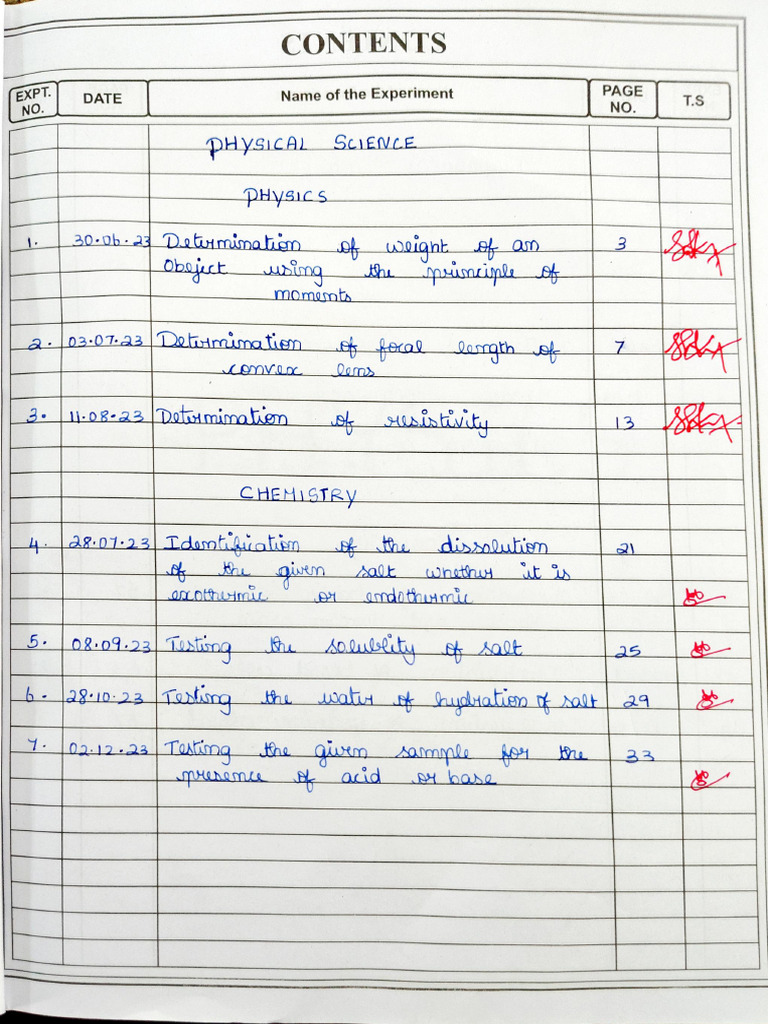 CONTENTS
EXPT. NO. DATE Name of the Experiment PAGE NO. T.S
PHYSICAL SCIENCE
PHYSICS
1. 30.06.23 Determination of weight of an 3
Obeject using the principle of
moments
2. 03.07.23 Determination of focal length of 7
convex lens
3. 11.08.23 Determination of resistivity 13
CHEMISTRY
4. 28.07.23 Identification of the dissolution 21
of the given salt whether it is
exothermic or endothermic
5. 08.09.23 Testing the solublity of salt 25
6. 28.10.23 Testing the water of hydration of salt 29
7. 02.12.23 Testing the given sample for the 33
presence of acid or base